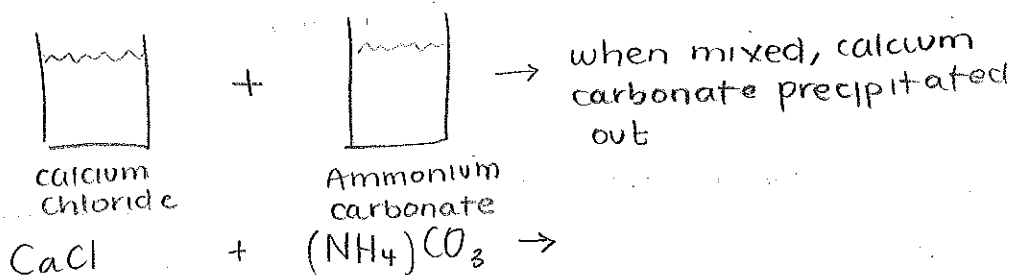 + → when mixed, calcium
carbonate precipitated
out
calcium
chloride
Ammonium
carbonate
CaCl + (NH₄)CO₃ →